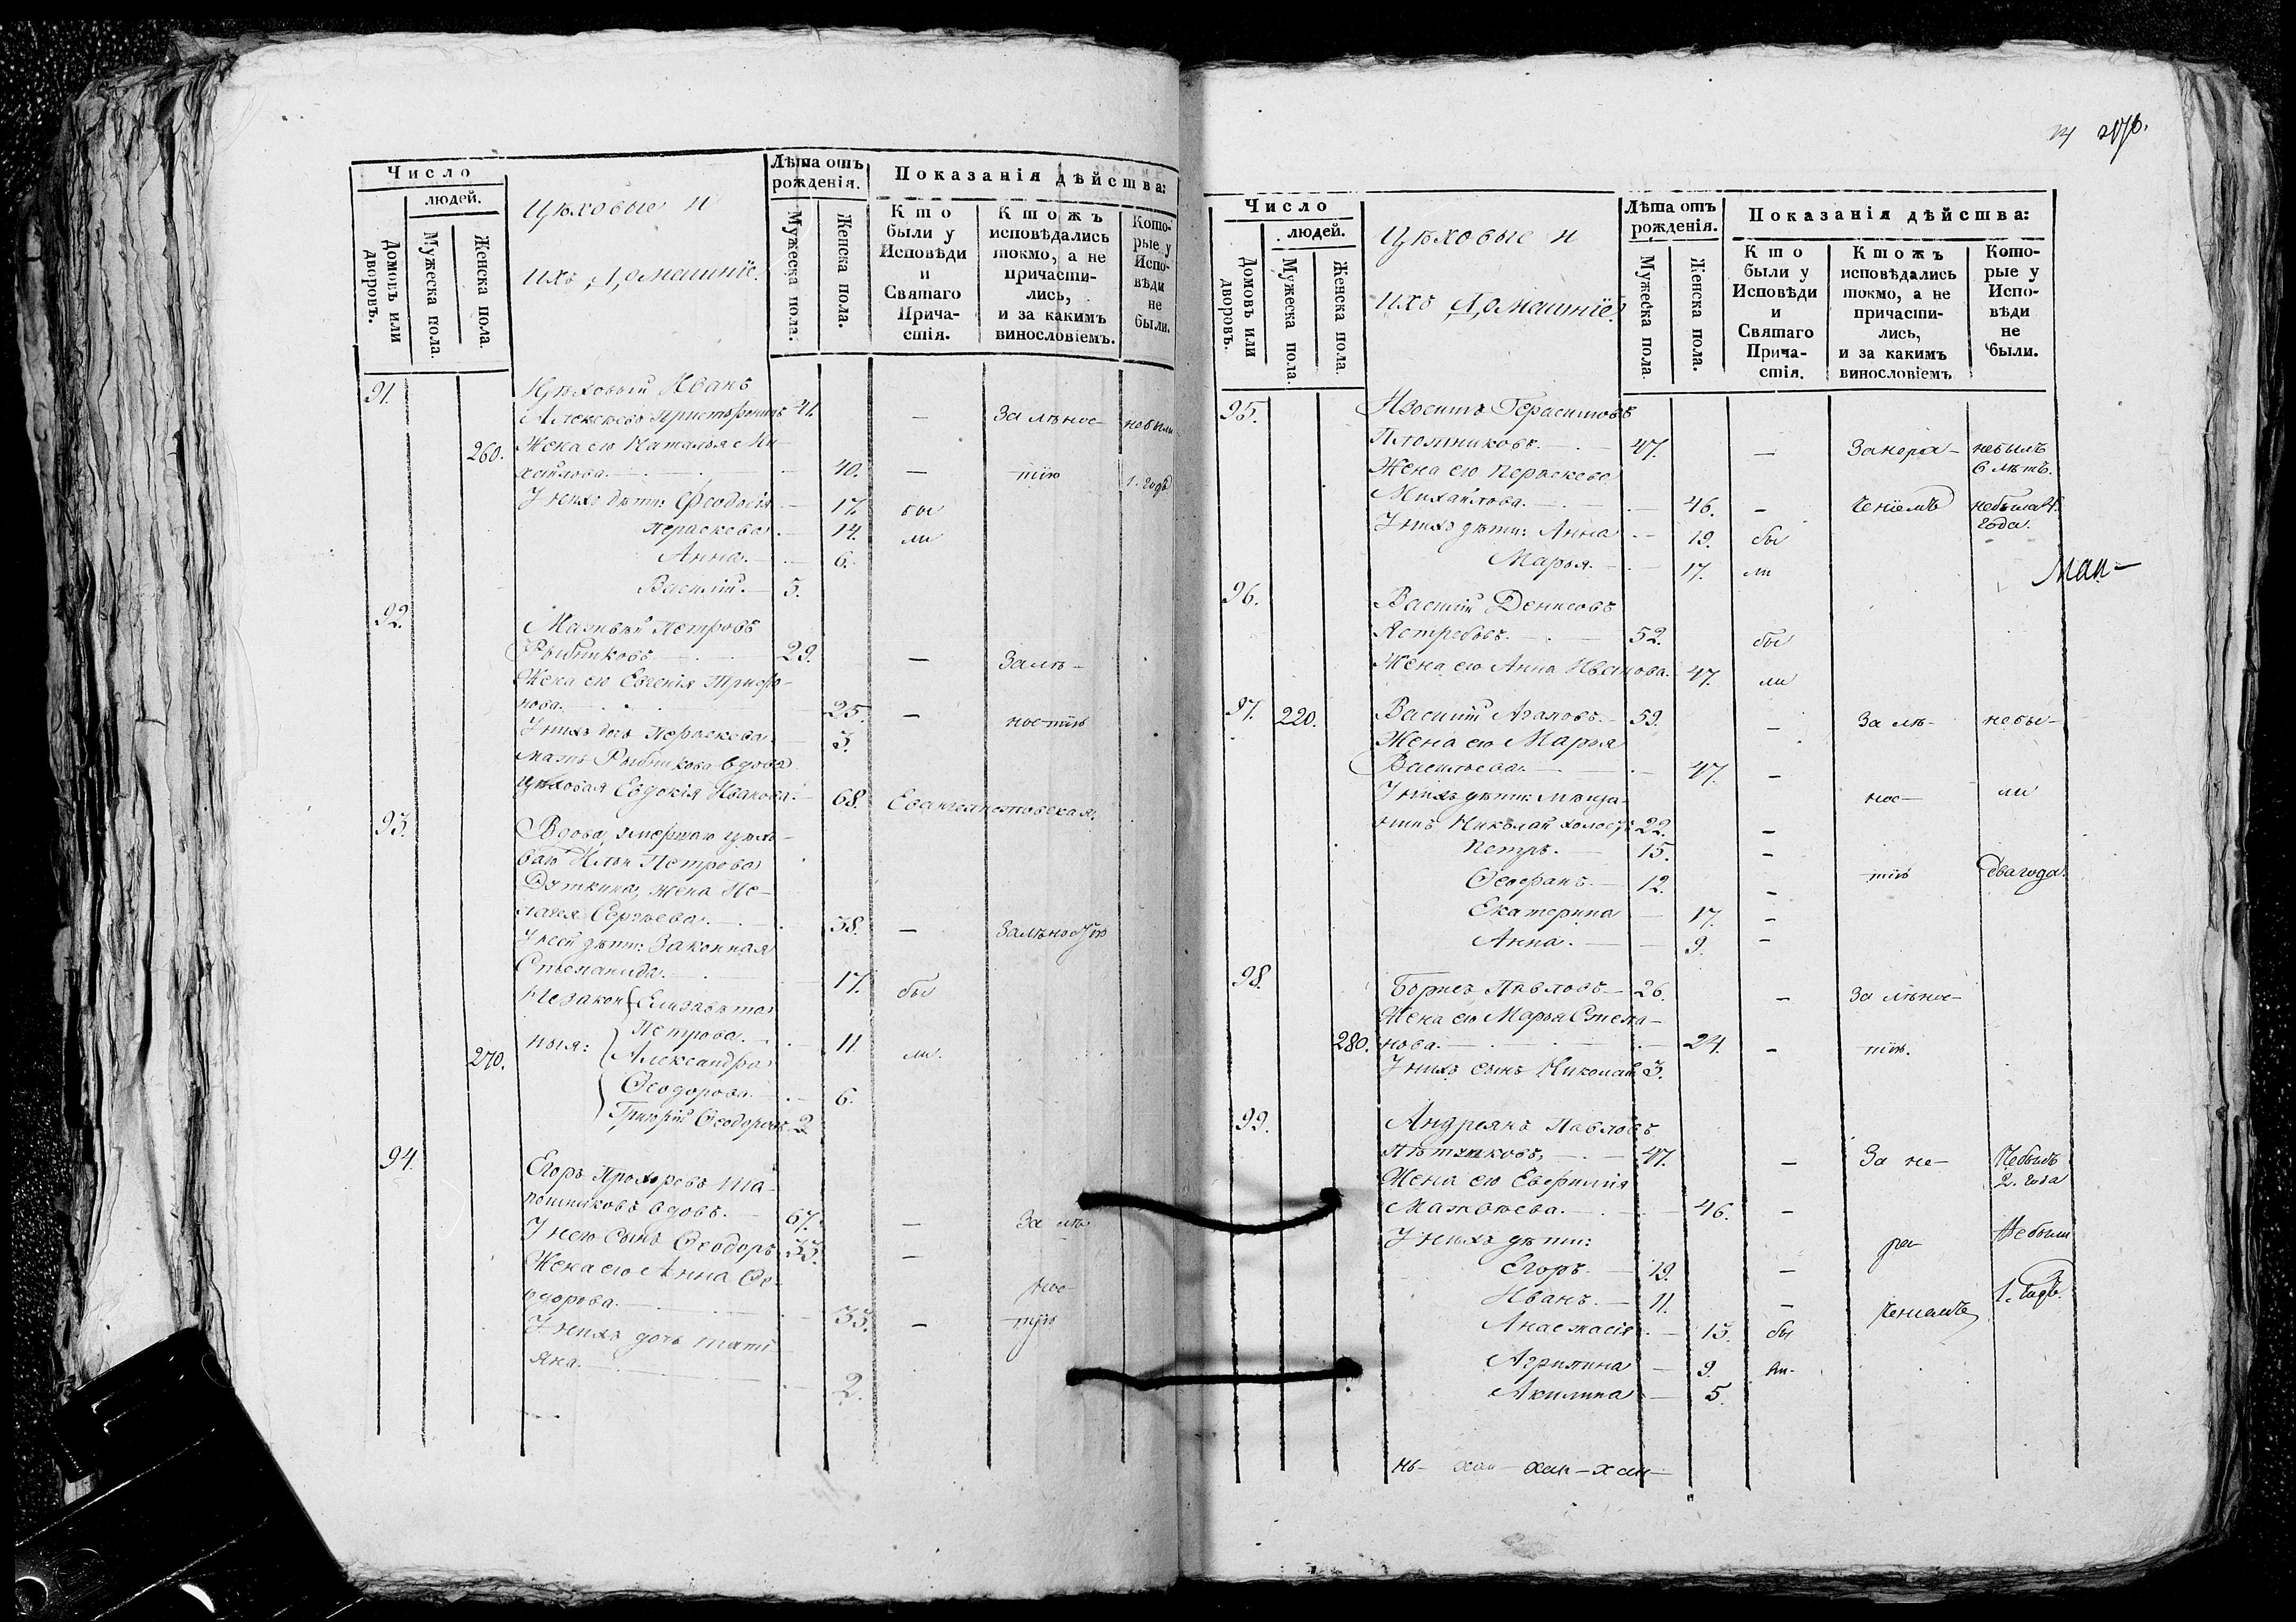 Число
людей.
Домовъ или дворовъ.
Мужеска пола.
Женска пола.
Цѣховые и
ихъ Домашніе.
Лѣта отъ рожденія.
Мужеска пола.
Женска пола.
Показанія дѣйства:
Кто были у Исповѣди и Святаго Причастія.
Ктожъ исповѣдались токмо, а не причастились, и за какимъ винословіемъ.
Которые у Исповѣди не были.
91. Цѣховый Иванъ
Алексѣевъ 41. — За лѣнос- небыли
260. Жена ею Наталья Ми-
хайлова. 40. — тію 1. годъ
У нихъ дѣти: Феодосія 17. бы
Параскева 14. ли
Анна. 6.
Василій. 5.
92. Матвѣй Петровъ
Рыбниковъ 29. — За лѣ-
Жена ею Евгенія Трифо-
нова. 25. — ностію
У нихъ дочь Параскева 3.
мать Рыбникова вдова
цѣховая Евдокія Иванова. 68. Евангелистовская.
93. Вдова, умершаго цѣхо-
ваго Ильи Петрова
Дуткина, жена Пе-
лагея Сергѣева. 38. — За лѣностію
У ней дѣти: Законная
Степанида. 17. бы
Незакон- Елизавета
Петрова. 11. ли.
270. ныя: Александра
Феодорова. 6.
Григорій Феодоровъ. 2.
94. Егоръ Прохоровъ Ша-
пошниковъ вдовъ. 67. — За лѣ
У нею Сынъ Феодоръ 33. —
Жена ею Анна Фе- нос-
одорова. 33. — тію
У нихъ дочь Тати
яна. 2.
Число
людей.
Домовъ или дворовъ.
Мужеска пола.
Женска пола.
Цѣховые и
ихъ Домашніе.
Лѣта отъ рожденія.
Мужеска пола.
Женска пола.
Показанія дѣйства:
Кто были у Исповѣди и Святаго Причастія.
Ктожъ исповѣдались токмо, а не причастились, и за какимъ винословіемъ
Которые у Исповѣди не были.
95. Герасимовъ
Плотниковъ. 47. — За нера- небылъ 6 лѣтъ.
Жена ею Параскева
Михайлова. 46. — ченіемъ небыла 4. года.
У нихъ дѣти: Анна 19. бы
Марья. 17. ли
96. Василій Денисовъ
Ястребовъ. 52. бы
Жена ею Анна Иванова. 47. ли
97. 220. Василій Агаповъ. 59. — За лѣ- небы-
Жена ею Марья
Васильева. 47. —
У нихъ дѣти: мѣща- нос- ли
нинъ Николай холостъ 22. —
Петръ. 15. —
Феофанъ. 12. — тію два года.
Екатерина 17. —
Анна. 9. —
98. Борисъ Павловъ 26. — За лѣнос-
Жена ею Марья Степа-
280. нова. 24. — тію.
У нихъ сынъ Николай 3.
99. Андреянъ Павловъ
47. — За не- Небылъ 2. года
Жена ею Евфимія
Матвѣева. 46. —
У нихъ дѣти: ра- Небыли
Егоръ. 19. —
Иванъ. 11. — ченіемъ 1. годъ.
Анастасія 15. бы
Агрипина 9. ли.
Акилина 5.